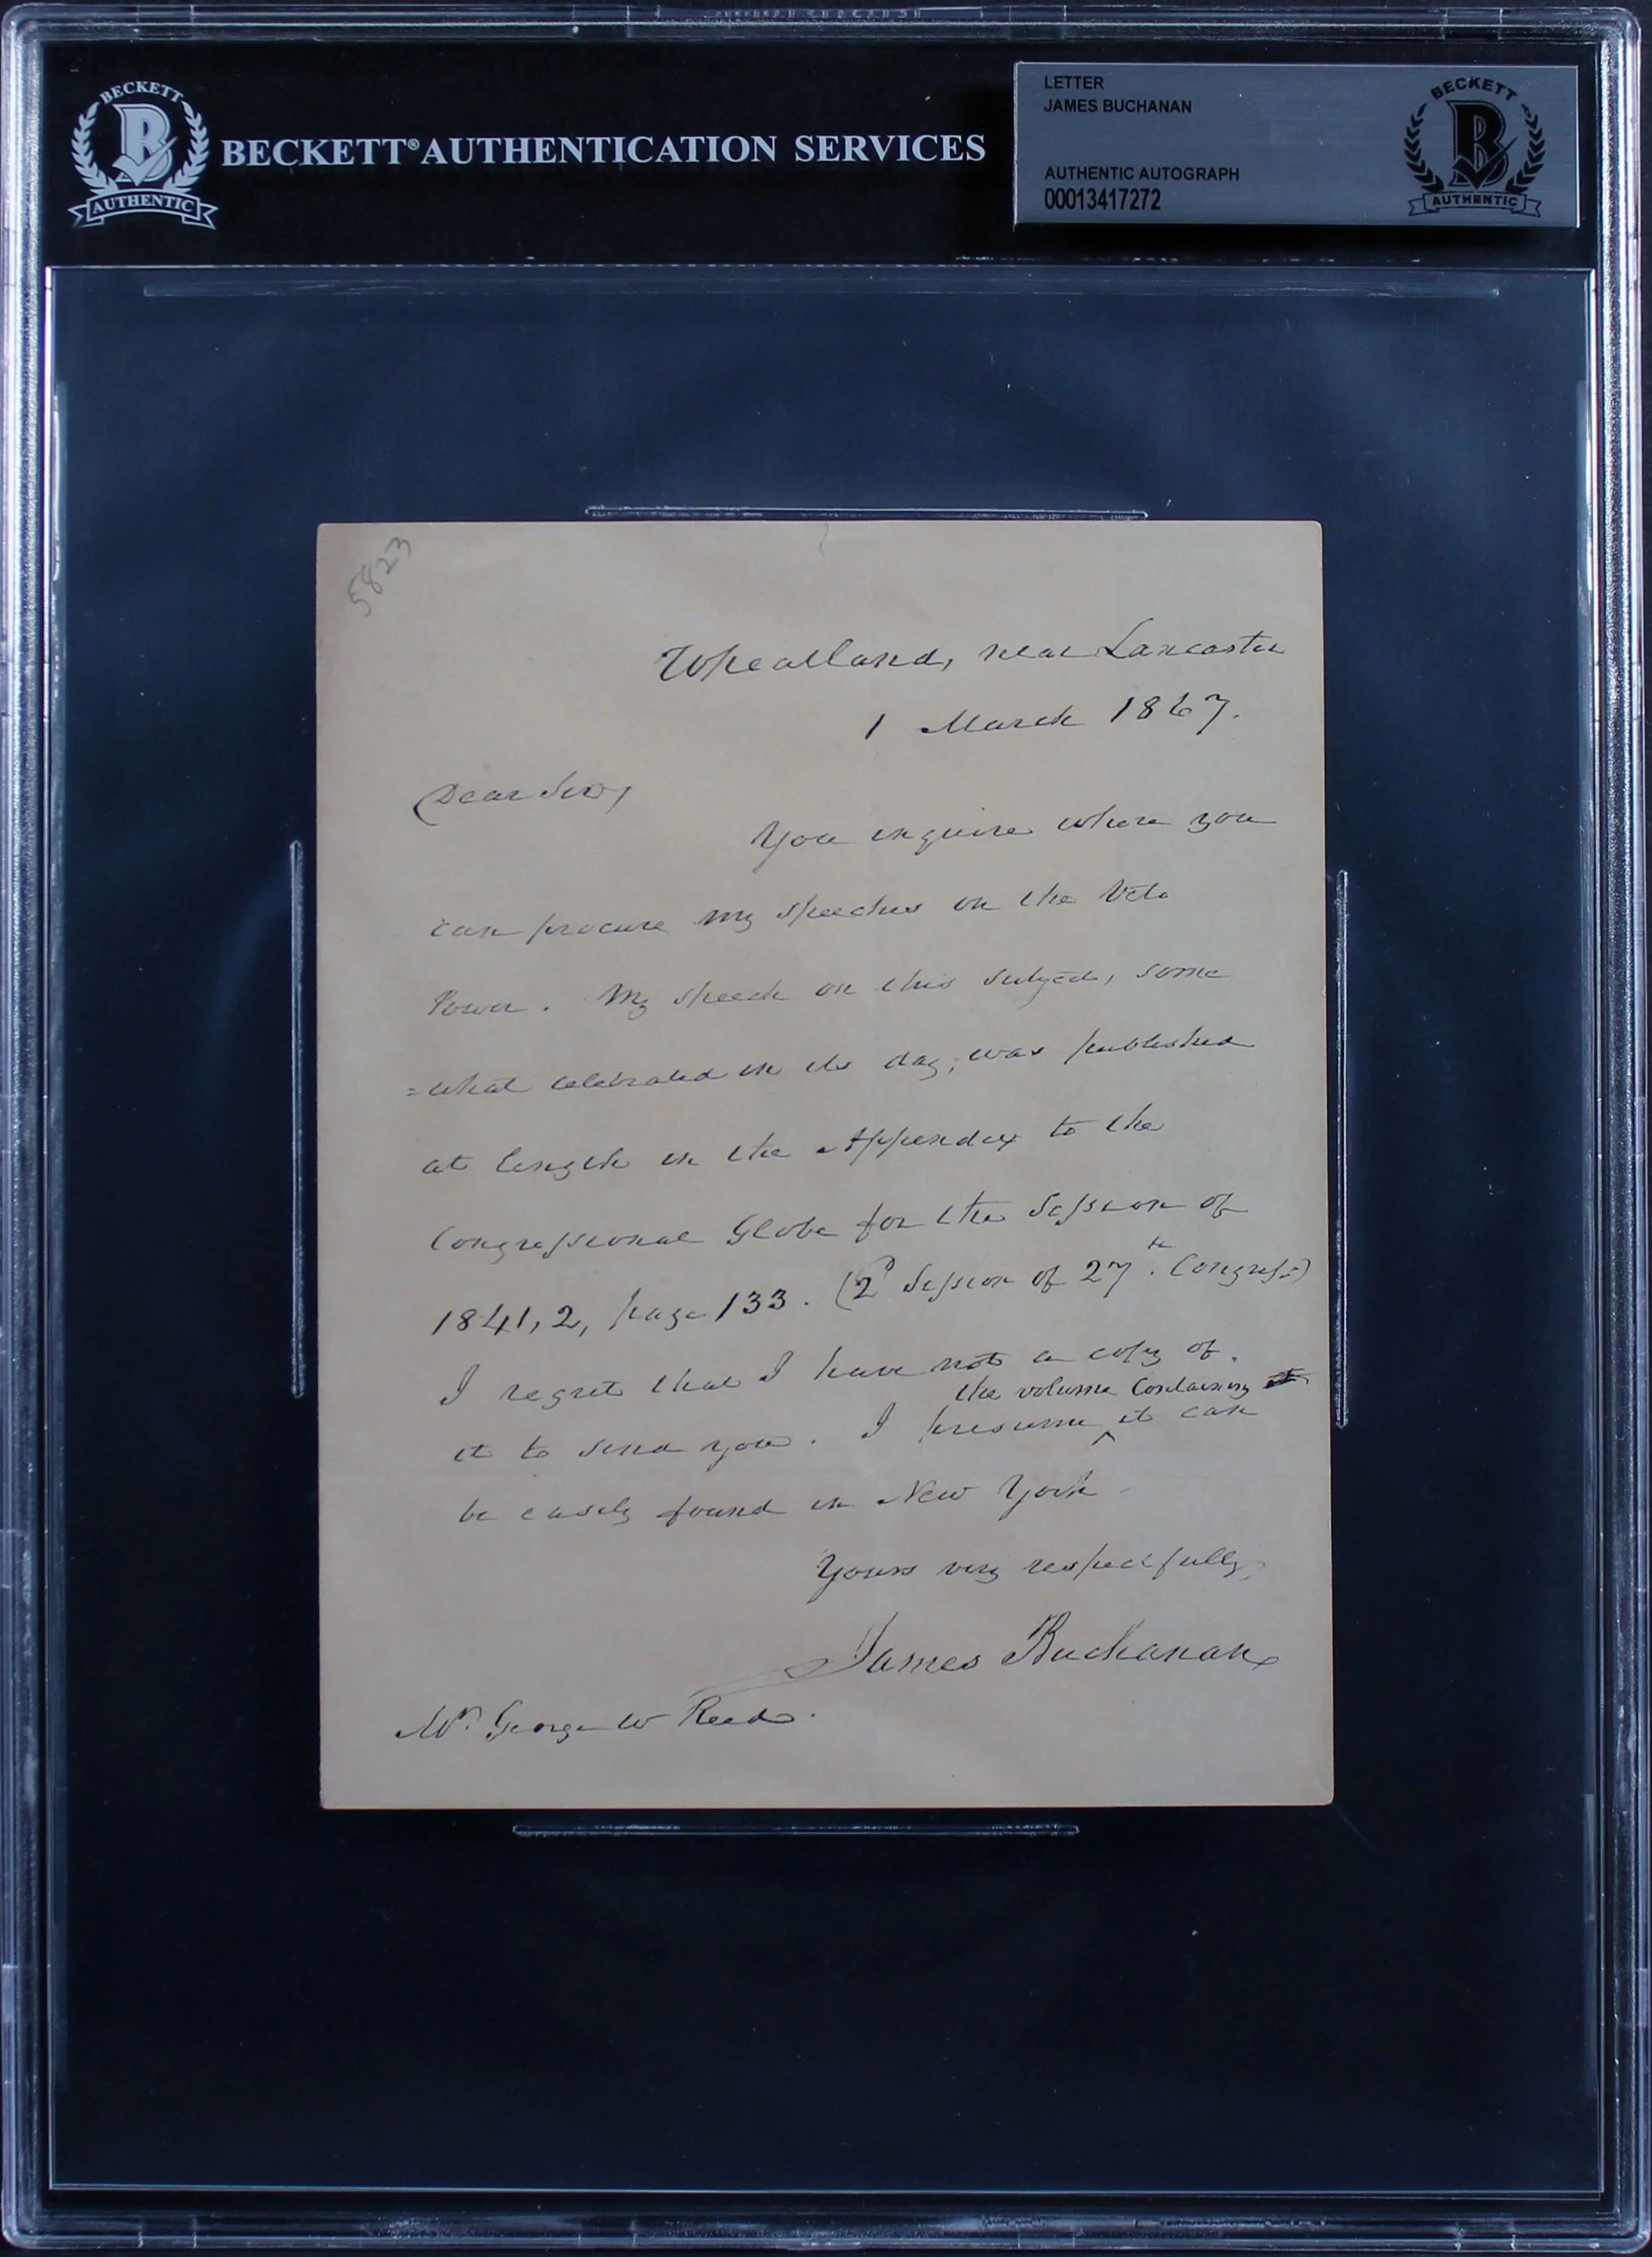 BECKETT
B
AUTHENTIC
BECKETT® AUTHENTICATION SERVICES
LETTER
JAMES BUCHANAN
AUTHENTIC AUTOGRAPH
00013417272
BECKETT
B
AUTHENTIC
5823
Wheatland, near Lancaster
1 March 1867.
Dear Sir,
You inquire where you
can procure my speeches on the Veto
Power. My speech on this subject, some
=what celebrated in its day, was published
at length in the Appendix to the
Congressional Globe for the Session of
1841, 2, page 133. (2d Session of 27th Congress)
I regret that I have not a copy of
the volume containing it
it to send you. I presume ^ it can
be easily found in New York
Yours very respectfully,
James Buchanan
Mr. George W Reed.